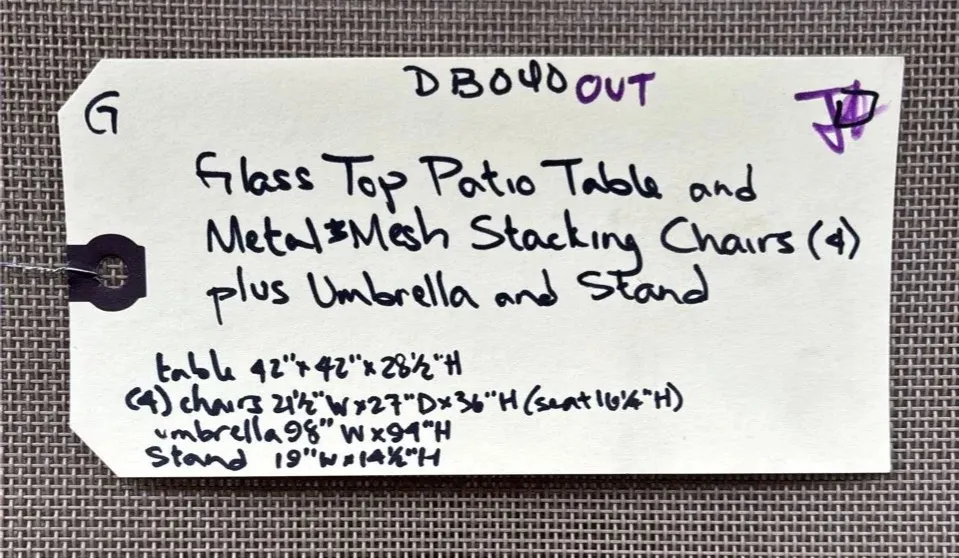 DB040 OUT
G
Glass Top Patio Table and
Metal & Mesh Stacking Chairs (4)
plus Umbrella and Stand
table 42"x42"x28½"H
(4) chairs 21½"Wx27"Dx36"H (seat 16¼"H)
umbrella 98"Wx94"H
Stand 19"Wx14½"H